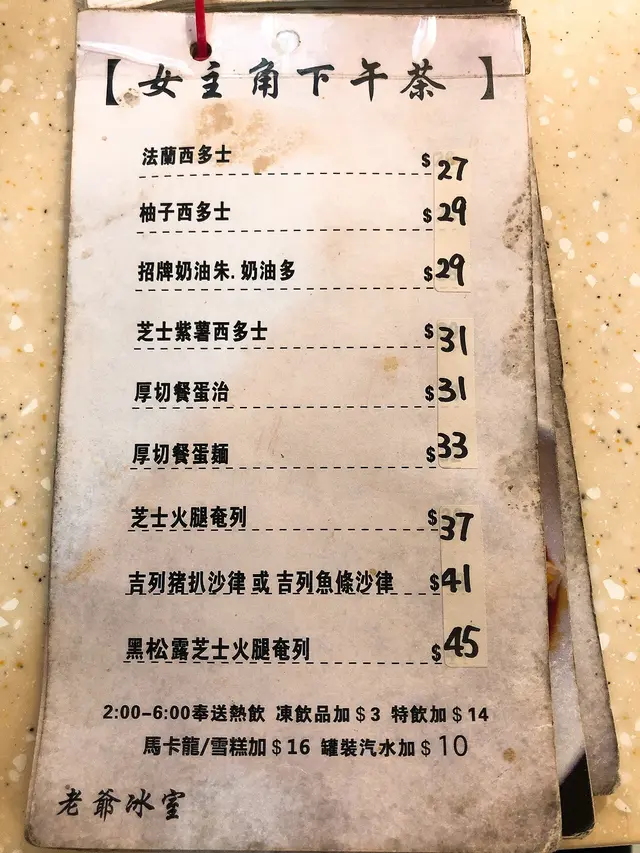 【女主角下午茶】
法蘭西多士 $27
柚子西多士 $29
招牌奶油朱.奶油多 $29
芝士紫薯西多士 $31
厚切餐蛋治 $31
厚切餐蛋麵 $33
芝士火腿奄列 $37
吉列猪扒沙律 或 吉列魚條沙律 $41
黑松露芝士火腿奄列 $45
2:00-6:00奉送熱飲 凍飲品加$3 特飲加$14
馬卡龍/雪糕加$16 罐裝汽水加$10
老爺冰室